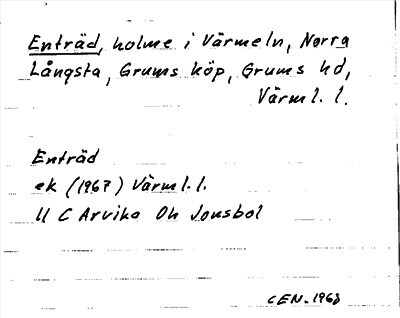 Enträd, holme i Värmeln, Norra
Långsta, Grums köp, Grums hd,
Värml. l.
Enträd
ek (1967) Värml. l.
11 C Arvika Oh Jonsbol
CEN. 1968